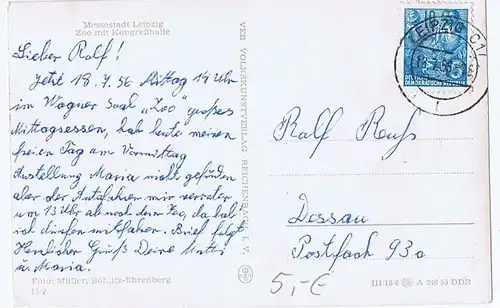 Messestadt Leipzig
Zoo mit Kongreßhalle
Lieber Ralf!
Jetzt 18.7.56 Mittag 14 Uhr
im Wagner Saal "Zoo" großes
Mittagessen, hab heute meinen
freien Tag am Vormittag
Anstellung Maria nicht gefunden
aber der Autofahrer mir verraten
um 13 Uhr ab nach dem Zoo, da hab
ich dürfen mitfahren. Brief folgt
Herzlicher Gruß Deine Mutti
u. Maria.
Foto: Müller, Böhlitz-Ehrenberg
VEB VOLKSKUNSTVERLAG REICHENBACH I. V.
LEIPZIG C1
DEUTSCHE DEMOKRATISCHE REPUBLIK
Ralf
Dessau
Postfach 93a
5,-€
III 18 6 A 246 55 DDR